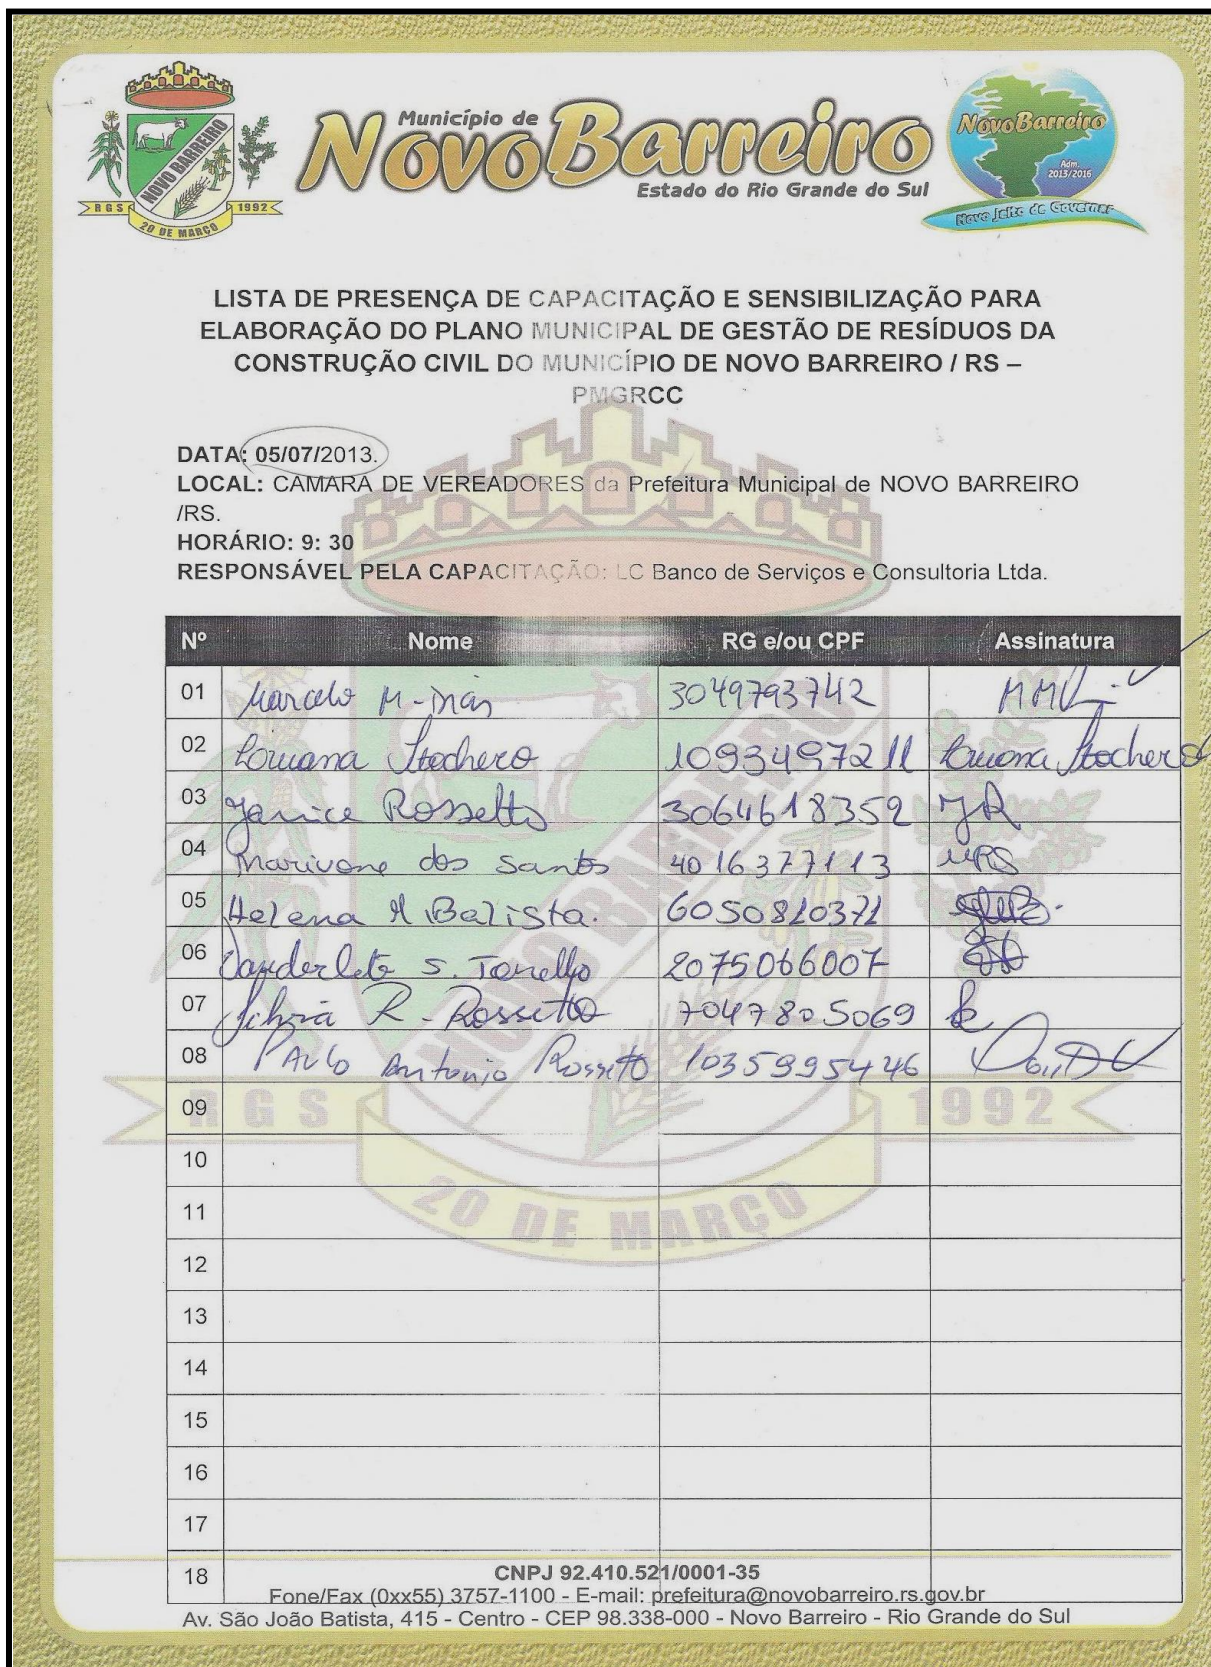 NOVO BARREIRO
RGS 1992
20 DE MARÇO
Município de
Novo Barreiro
Estado do Rio Grande do Sul
Novo Barreiro
Adm.
2013/2016
Novo Jeito de Governar
LISTA DE PRESENÇA DE CAPACITAÇÃO E SENSIBILIZAÇÃO PARA
ELABORAÇÃO DO PLANO MUNICIPAL DE GESTÃO DE RESÍDUOS DA
CONSTRUÇÃO CIVIL DO MUNICÍPIO DE NOVO BARREIRO / RS –
PMGRCC
DATA: 05/07/2013.
LOCAL: CAMARA DE VEREADORES da Prefeitura Municipal de NOVO BARREIRO
/RS.
HORÁRIO: 9: 30
RESPONSÁVEL PELA CAPACITAÇÃO: LC Banco de Serviços e Consultoria Ltda.
Nº Nome RG e/ou CPF Assinatura
01 Marcelo M. 3049793742
02 Stochero 1093497211 Stochero
03 Janice Rossetto 3064618352 JR
04 Marivone dos Santos 4016377113
05 Helena M Batista. 6050810371
06 Vanderlete S. 2075066007
07 Silvia R. Rossetto 7047805069
08 PAulo Antonio Rossetto 1035995446
09
10
11
12
13
14
15
16
17
18
NOVO BARREIRO
RGS 1992
20 DE MARÇO
CNPJ 92.410.521/0001-35
Fone/Fax (0xx55) 3757-1100 - E-mail: prefeitura@novobarreiro.rs.gov.br
Av. São João Batista, 415 - Centro - CEP 98.338-000 - Novo Barreiro - Rio Grande do Sul